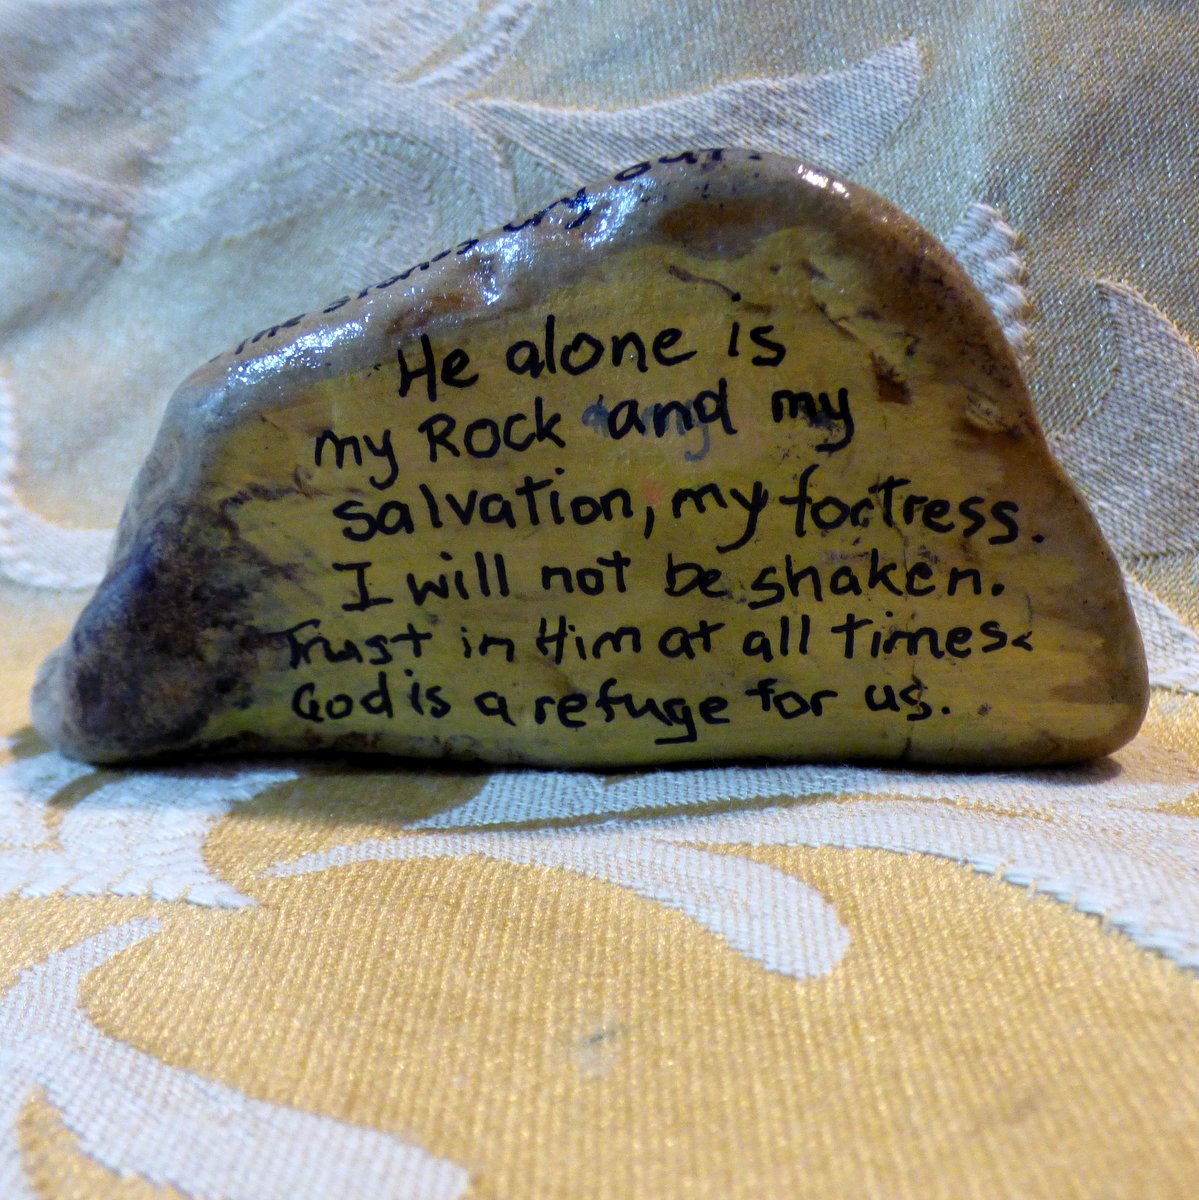 the stones cry out.
He alone is
my Rock and my
salvation, my fortress.
I will not be shaken.
Trust in Him at all times.
God is a refuge for us.